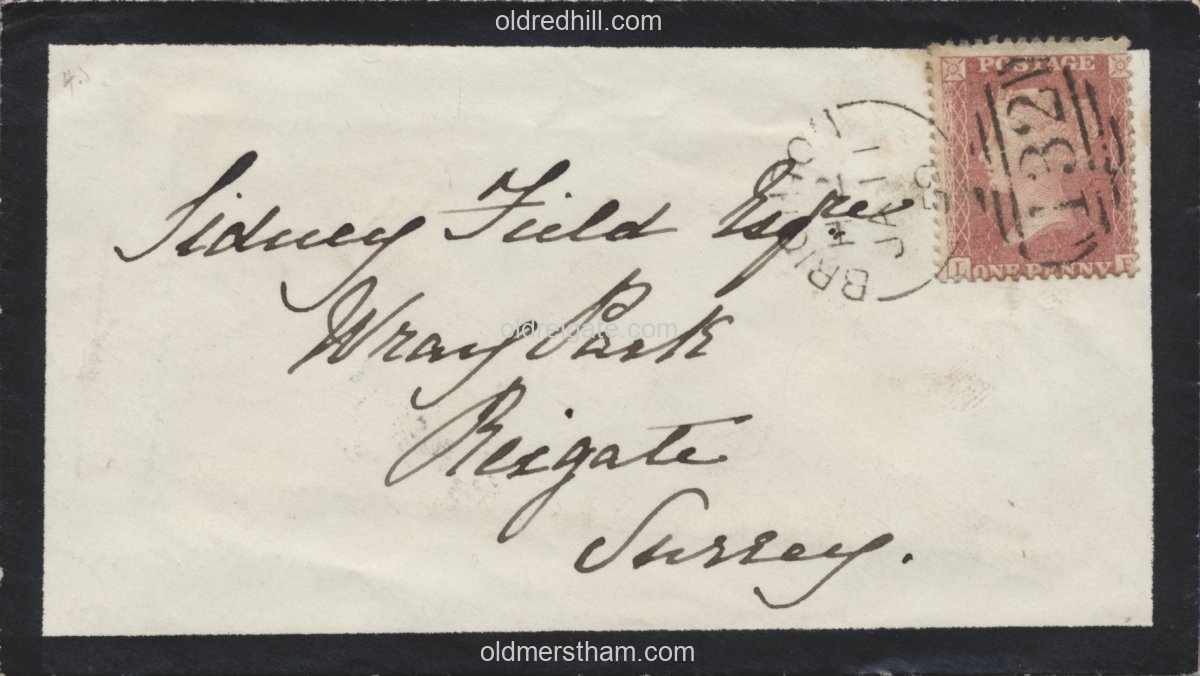 oldredhill.com
4.5
POSTAGE
132
BRIGHTON
JA 11
Sidney Field Esqre
L ONE PENNY F
Wray Park
oldreigate.com
Reigate
Surrey.
oldmerstham.com